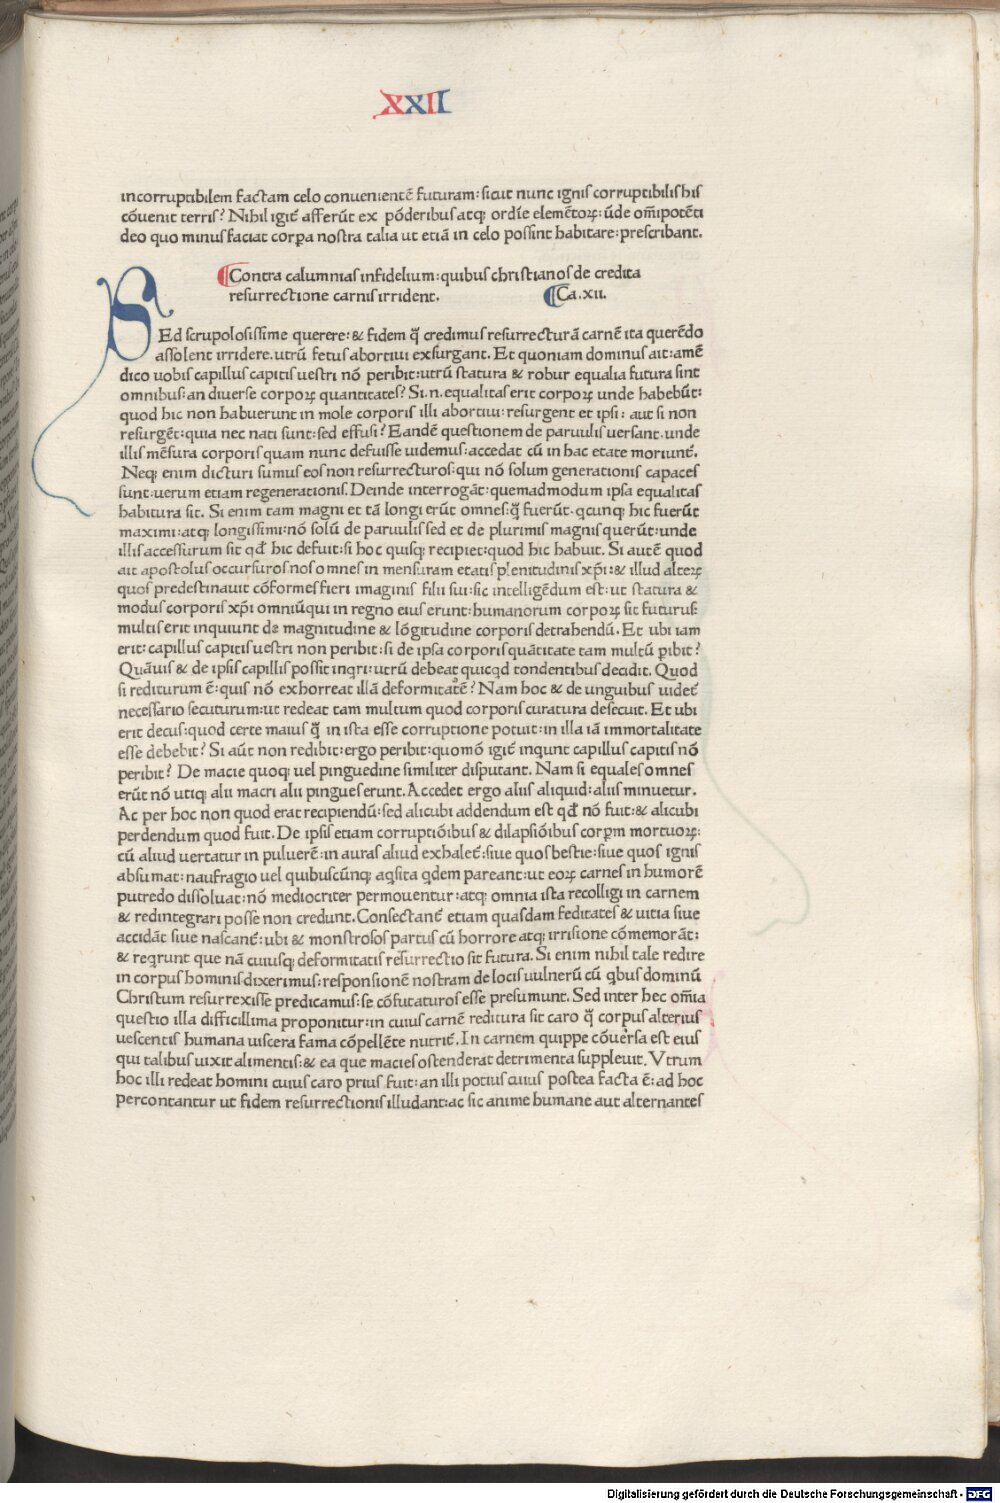 XXII
incorruptibilem factam celo conueniente᷒ futuram: sicut nunc ignis corruptibilis his
cōuenit terris? Nihil igit᷑ afferūt ex pōderibus atq; ordīe elemētoꝝ: ūde om̄ipotēti
deo quo minus faciat corꝑa nostra talia ut etiā in celo possint habitare: prescribant.
¶Contra calumnias infidelium: quibus christianos de credita
resurrectione carnis irrident. ¶Ca .xii.
SEd scrupolosissime querere: & fidem q̄ credimus resurrecturā carnē ita querēdo
assolent irridere. utrū fetus abortiui exsurgant. Et quoniam dominus ait: amē
dico uobis capillus capitis uestri nō peribit: utrū statura & robur equalia futura sint
omnibus: an diuerse corpoꝝ quantitates? Si .n. equalitas erit corpoꝝ unde habebūt:
quod hic non habuerunt in mole corporis illi abortiui: resurgent et ipsi: aut si non
resurgēt: quia nec nati sunt: sed effusi? Eandē questionem de paruulis uersant. unde
illis mēsura corporis quam nunc defuisse uidemus: accedat cū in hac etate moriunt᷑.
Neq; enim dicturi sumus eos non resurrecturos: qui nō solum generationis capaces
sunt. uerum etiam regenerationis. Deinde interrogāt: quemadmodum ipsa equalitas
habitura sit. Si enim tam magni et tā longi erūt omnes: q̄ fuerūt. qcunq; hic fuerūt
maximi: atq; longissimi: nō solū de paruulis sed et de plurimis magnis querūt: unde
illis accessurum sit qđ hic defuit: si hoc quisq; recipiet: quod hic habuit. Si autē quod
ait apostolus occursuros nos omnes in mensuram etatis plenitudinis xp̄i: & illud alteꝝ
quos predestinauit cōformes fieri imaginis filii sui: sic intelligēdum est: ut statura &
modus corporis xp̄i omniū qui in regno eius erunt: humanorum corpoꝝ sit futurus:
multis erit inquiunt de magnitudine & lōgitudine corporis detrahendū. Et ubi iam
erit: capillus capitis uestri non peribit: si de ipsa corporis quātitate tam multū ꝑibit?
Quāuis & de ipsis capillis possit inqri: utrū debeat quicqd tondentibus decidit. Quod
si rediturum ē: quis nō exhorreat illā deformitatē? Nam hoc & de unguibus uidet᷑
necessario secuturum: ut redeat tam multum quod corporis curatura desecuit. Et ubi
erit decus: quod certe maius q̄ in ista esse corruptione potuit: in illa iā immortalitate
esse debebit? Si aūt non redibit: ergo peribit: quomō igit᷑ inqunt capillus capitis nō
peribit? De macie quoq; uel pinguedine similiter disputant. Nam si equales omnes
erūt nō utiq; alii macri alii pingues erunt. Accedet ergo aliis aliquid: aliis minuetur.
Ac per hoc non quod erat recipiendū: sed alicubi addendum est qđ nō fuit: & alicubi
perdendum quod fuit. De ipsis etiam corruptiōibus & dilapsiōibus corꝑm mortuoꝝ:
cū aliud uertatur in puluerē: in auras aliud exhalet᷑: siue quos bestie: siue quos ignis
absumat: naufragio uel quibuscūnq; aqsita qdem pareant: ut eoꝝ carnes in humorē
putredo dissoluat: nō mediocriter permouentur: atq; omnia ista recolligi in carnem
& redintegrari posse non credunt. Consectant᷑ etiam quasdam feditates & uitia siue
accidāt siue nascant᷑: ubi & monstrosos partus cū horrore atq; irrisione cōmemorāt:
& reqrunt que nā cuiusq; deformitatis resurrectio sit futura. Si enim nihil tale redire
in corpus hominis dixerimus: responsionē nostram de locis uulnerū cū qbus dominū
Christum resurrexisse predicamus: se cōfutaturos esse presumunt. Sed inter hec om̄ia
questio illa difficillima proponitur: in cuius carnē reditura sit caro q̄ corpus alterius
uescentis humana uiscera fama cōpellēte nutrit᷑. In carnem quippe cōuersa est eius
qui talibus uixit alimentis: & ea que macies ostenderat detrimenta suppleuit. Vtrum
hoc illi redeat homini cuius caro prius fuit: an illi potius cuius postea facta ē: ad hoc
percontantur ut fidem resurrectionis illudant: ac sic anime humane aut alternantes
Digitalisierung gefördert durch die Deutsche Forschungsgemeinschaft - DFG